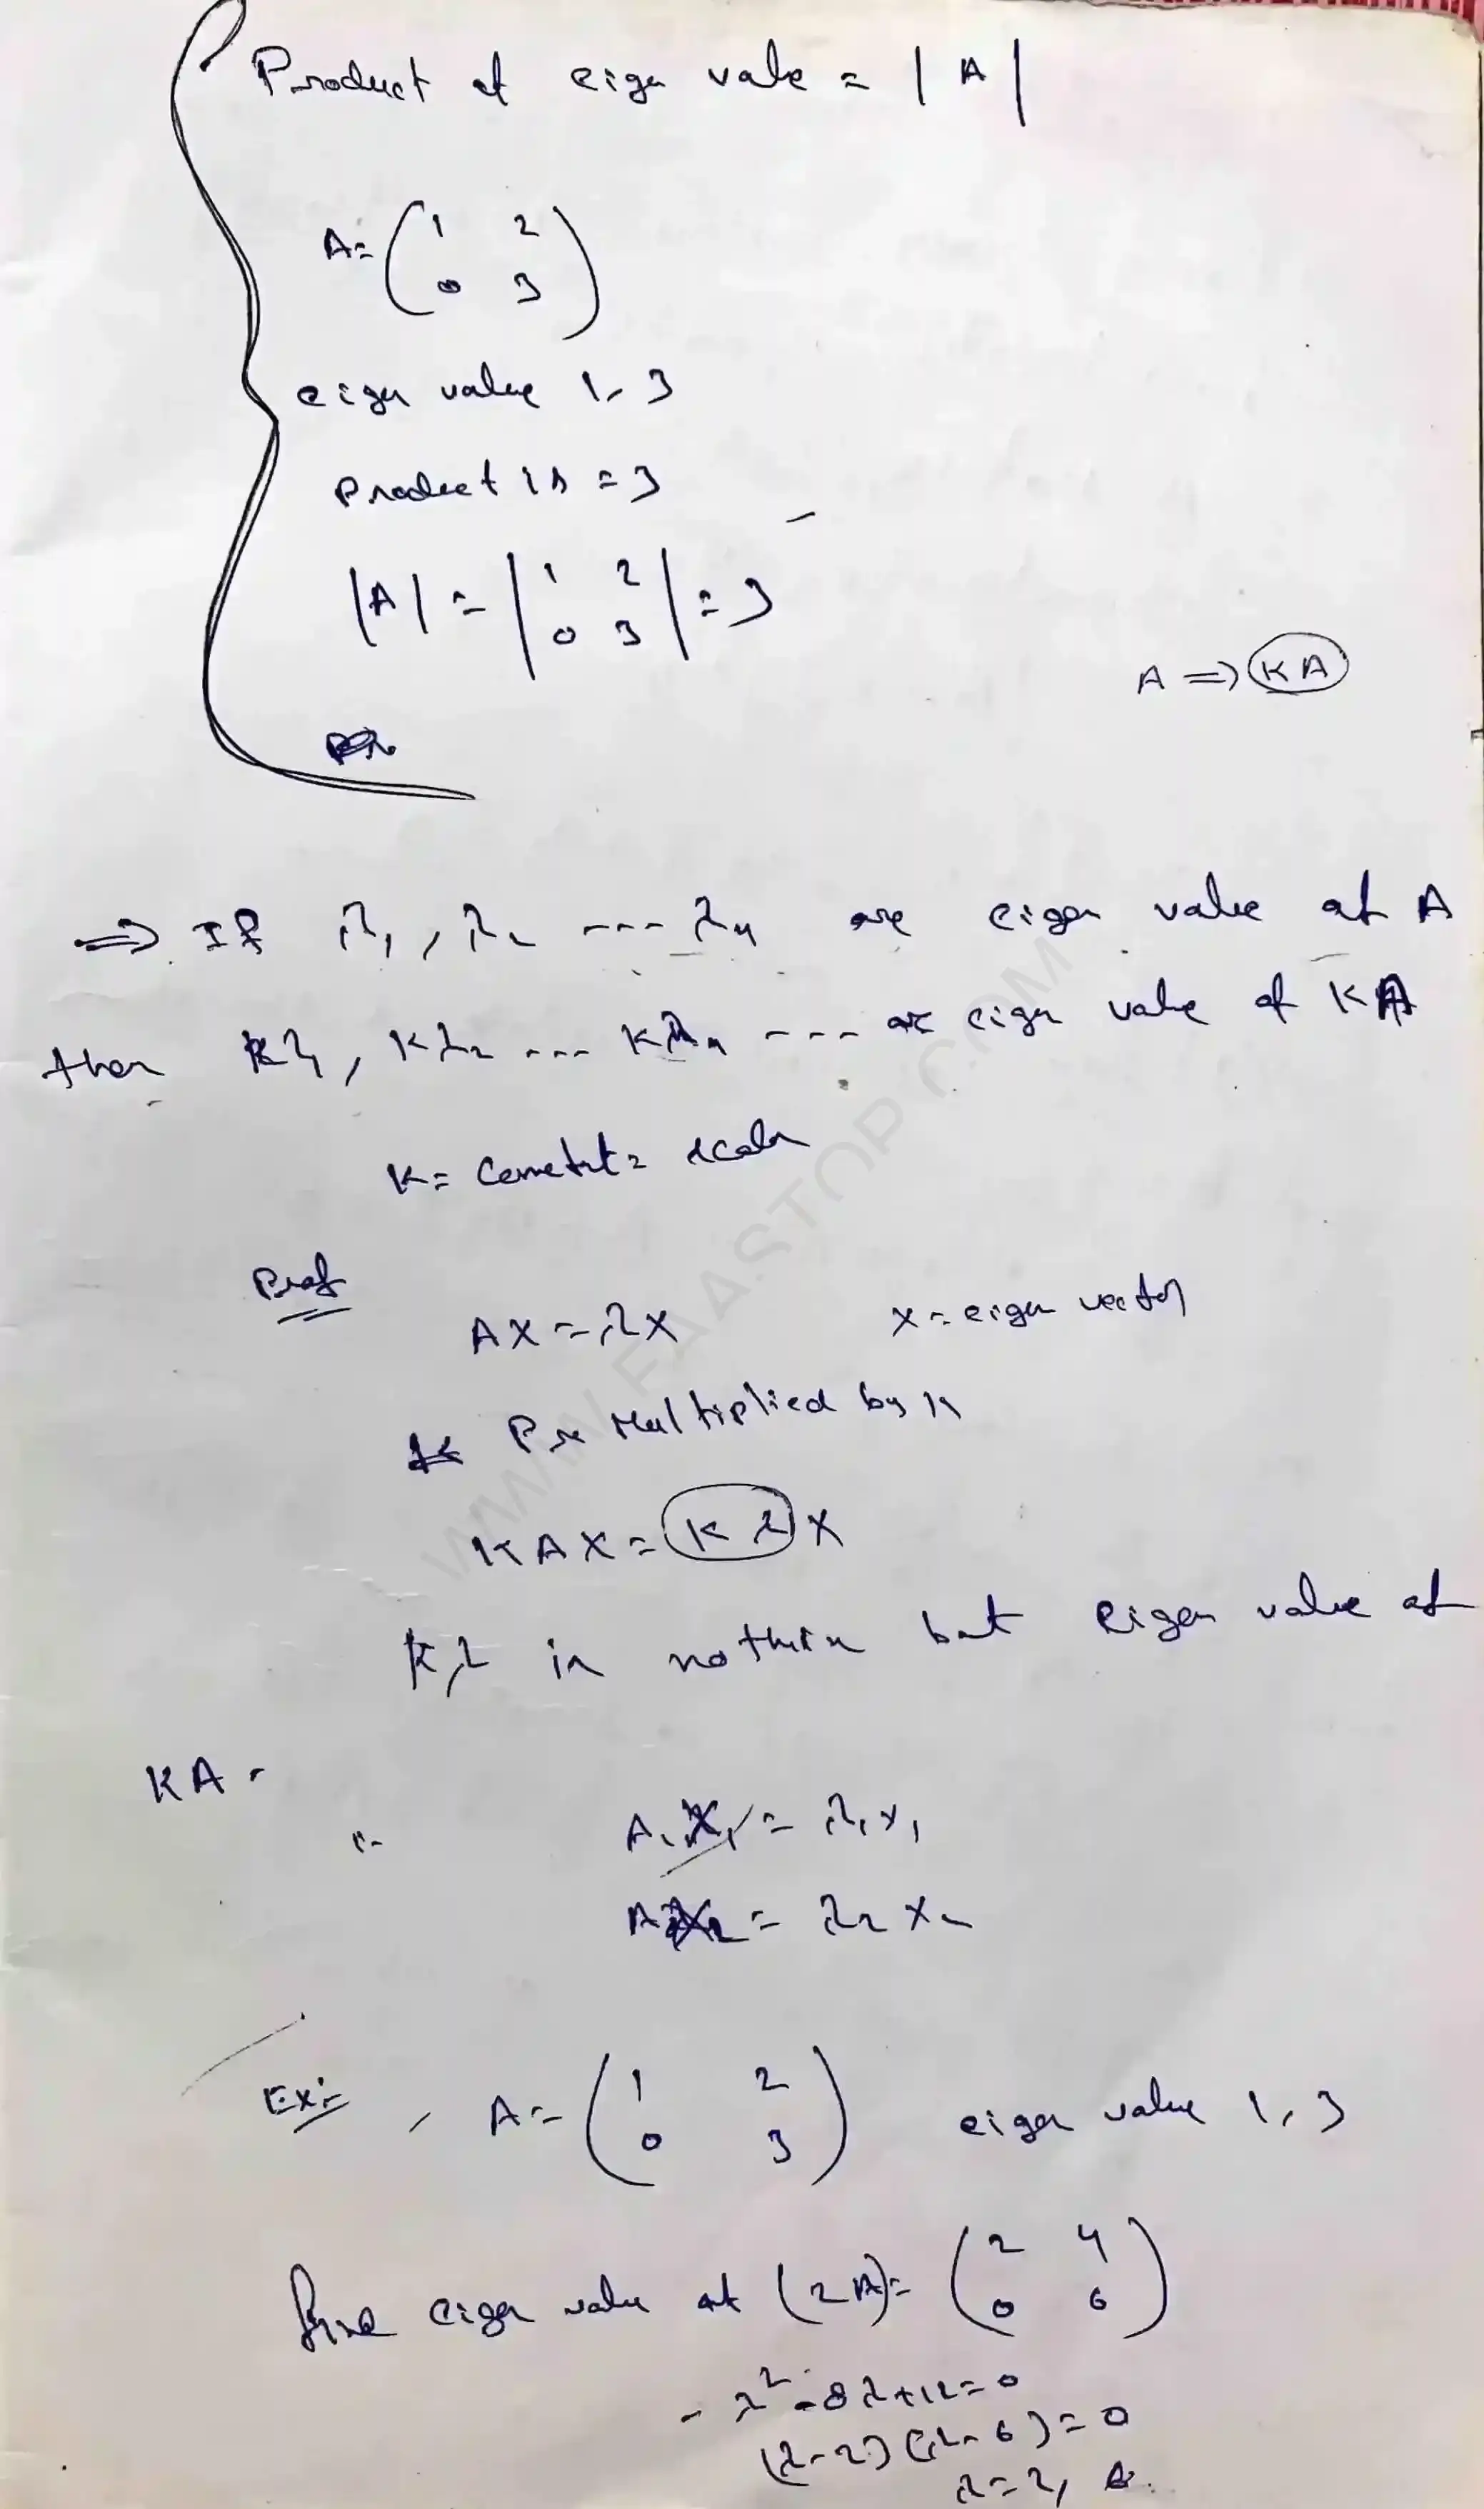 Product of eigen value = | A |
A = ( 1 2
0 3 )
eigen value 1, 3
Product is = 3
|A| = | 1 2
0 3 | = 3
A ⇒ KA
⇒ If λ₁, λ₂ --- λₙ are eigen value of A
then Kλ₁, Kλ₂ --- Kλₙ --- are eigen value of KA
K = = scalar
Proof
AX = λX X = eigen vector
Pre Multiplied by K
KAX = Kλ X
Kλ is nothin but eigen value of
KA.
A X₁ = λ₁x₁
A X₂ = λ₂x₂
Ex:- A = ( 1 2
0 3 ) eigen value 1, 3
eigen value of (2A) = ( 2 4
0 6 )
- λ² - 8λ + 12 = 0
(λ - 2) (λ - 6) = 0
λ = 2, 6.
WWW.FAASTOP.COM